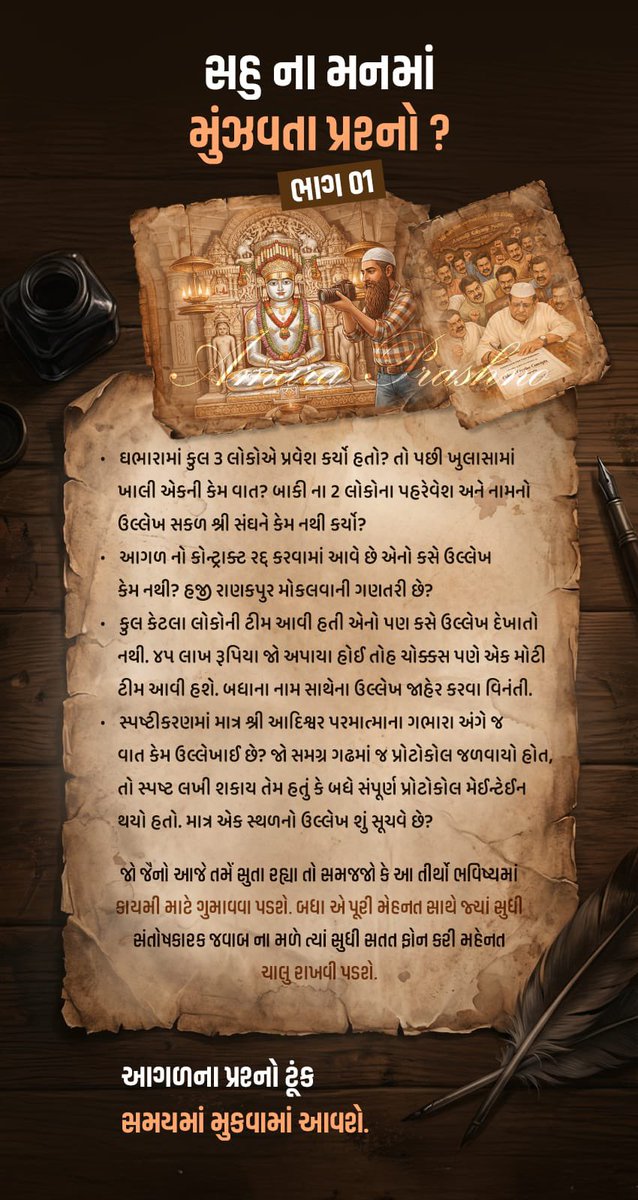 સહુ ના મનમાં
મુંઝવતા પ્રશ્નો ?
ભાગ 01
Amara Prashno
• ઘભારામાં કુલ 3 લોકોએ પ્રવેશ કર્યો હતો? તો પછી ખુલાસામાં
ખાલી એકની કેમ વાત? બાકી ના 2 લોકોના પહરેવેશ અને નામનો
ઉલ્લેખ સકળ શ્રી સંઘને કેમ નથી કર્યો?
• આગળ નો કોન્ટ્રાક્ટ રદ્દ કરવામાં આવે છે એનો કસે ઉલ્લેખ
કેમ નથી? હજી રાણકપુર મોકલવાની ગણતરી છે?
• કુલ કેટલા લોકોની ટીમ આવી હતી એનો પણ કસે ઉલ્લેખ દેખાતો
નથી. ૪૫ લાખ રૂપિયા જો અપાયા હોઈ તોહ ચોક્ક્સ પણે એક મોટી
ટીમ આવી હશે. બધાના નામ સાથેના ઉલ્લેખ જાહેર કરવા વિનંતી.
• સ્પષ્ટીકરણમાં માત્ર શ્રી આદિશ્વર પરમાત્માના ગભારા અંગે જ
વાત કેમ ઉલ્લેખાઈ છે? જો સમગ્ર ગઢમાં જ પ્રોટોકોલ જળવાયો હોત,
તો સ્પષ્ટ લખી શકાય તેમ હતું કે બધે સંપૂર્ણ પ્રોટોકોલ મેઈન્ટેઈન
થયો હતો. માત્ર એક સ્થળનો ઉલ્લેખ શું સૂચવે છે?
જો જૈનો આજે તમેં સુતા રહ્યા તો સમજજો કે આ તીર્થો ભવિષ્યમાં
કાયમી માટે ગુમાવવા પડશે. બધા એ પૂરી મેહનત સાથે જ્યાં સુધી
સંતોષકારક જવાબ ના મળે ત્યાં સુધી સતત ફોન કરી મહેનત
ચાલુ રાખવી પડશે.
આગળના પ્રશ્નો ટૂંક
સમયમાં મુકવામાં આવશે.